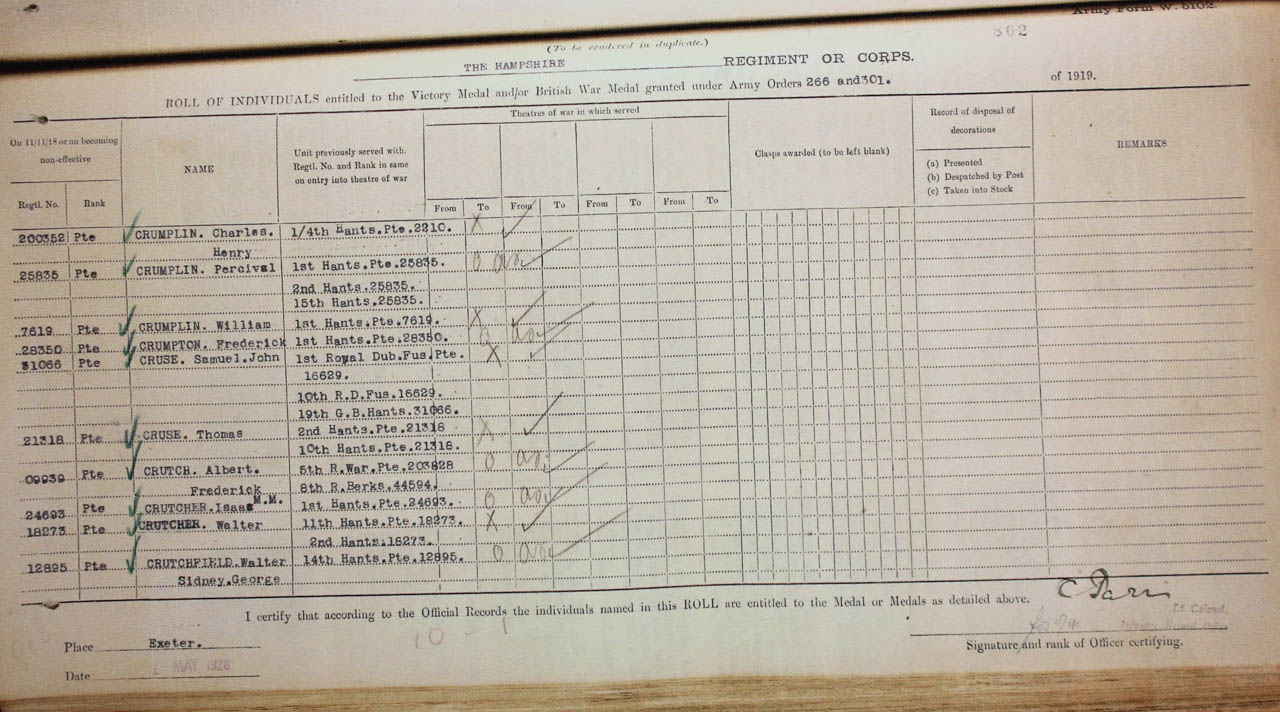 Army Form W. 5102.
302
(To be rendered in duplicate.)
THE HAMPSHIRE REGIMENT OR CORPS.
ROLL OF INDIVIDUALS entitled to the Victory Medal and/or British War Medal granted under Army Orders 266 and301. of 1919.
On 11/11/18 or on becoming
non-effective
Regtl. No. Rank
NAME
Unit previously served with.
Regtl. No. and Rank in same
on entry into theatre of war
Theatres of war in which served
From To From To From To From To
Clasps awarded (to be left blank)
Record of disposal of
decorations
(a) Presented
(b) Despatched by Post
(c) Taken into Stock
REMARKS
200352 Pte CRUMPLIN. Charles. 1/4th Hants.Pte.2210. X
Henry
25835 Pte CRUMPLIN. Percival 1st Hants.Pte.25835. O
2nd Hants.25835.
15th Hants.25835.
7619 Pte CRUMPLIN. William 1st Hants.Pte.7619. X
28350 Pte CRUMPTON. Frederick 1st Hants.Pte.28350. O
31066 Pte CRUSE. Samuel.John 1st Royal Dub.Fus.Pte. X
16629.
10th R.D.Fus.16629.
19th G.B.Hants.31066.
21318 Pte CRUSE. Thomas 2nd Hants.Pte.21318 X
10th Hants.Pte.21318.
09939 Pte CRUTCH. Albert. 5th R.War.Pte.203828 O
Frederick 8th R.Berks.44594.
24693 Pte CRUTCHER.Isaac M.M. 1st Hants.Pte.24693. O
18273 Pte CRUTCHER. Walter 11th Hants.Pte.18273. X
2nd Hants.18273.
12895 Pte CRUTCHFIELD.Walter 14th Hants.Pte.12895. O
Sidney.George
I certify that according to the Official Records the individuals named in this ROLL are entitled to the Medal or Medals as detailed above.
Place Exeter.
Date MAY 1920
10 - 1
Lt. Colonel,
Signature and rank of Officer certifying.